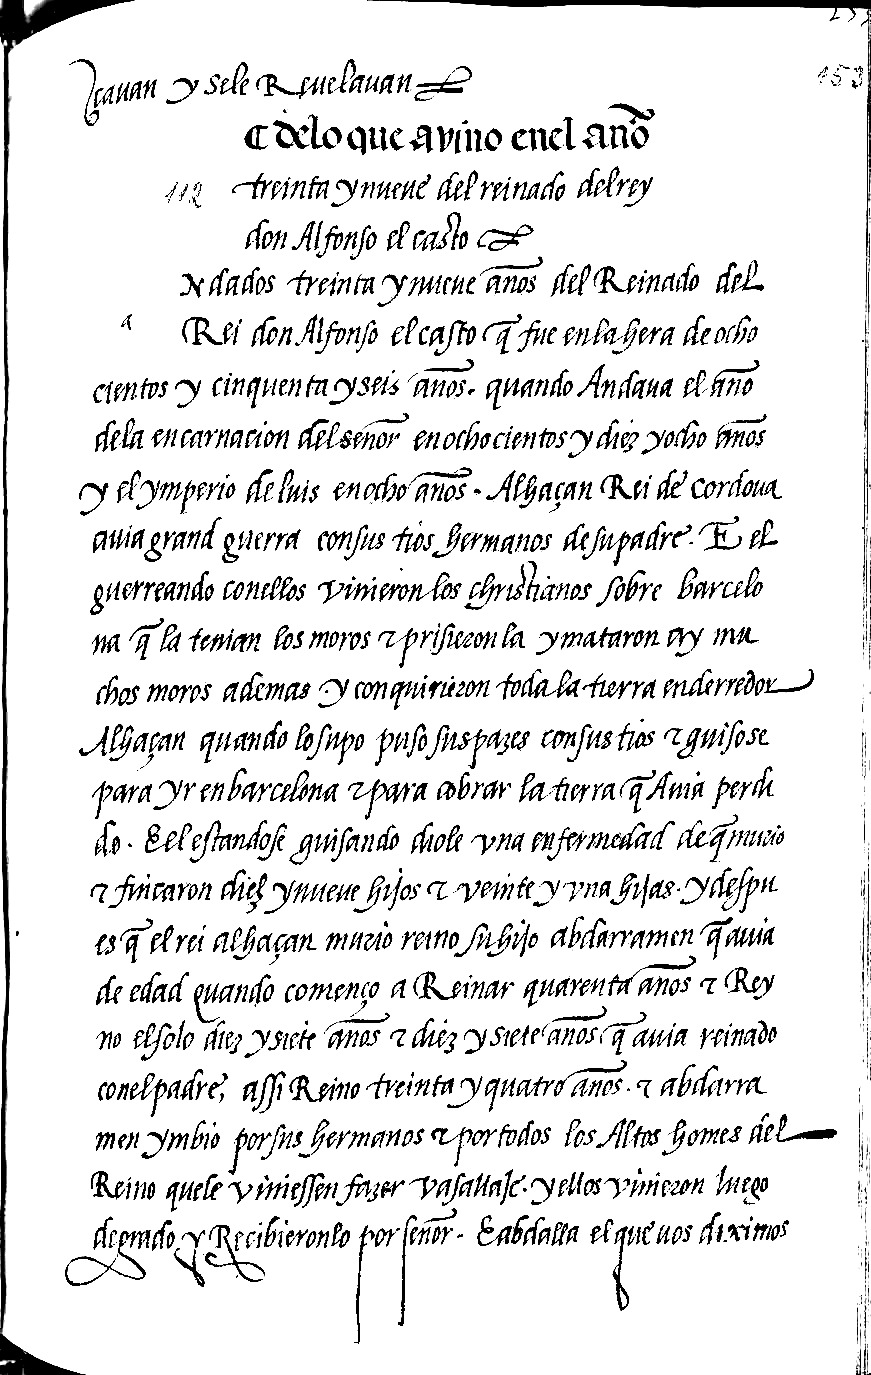 153
çauan y sele Revelauan
C delo que avino enel año
112 treinta y nueue del reinado del rey
don Alfonso el casto
Ndados treinta y nueue años del Reinado del
a Rei don Alfonso el casto q̃ fue en la hera de ocho
cientos y cinquenta y seis años. quando Andaua el año
dela encarnacion del señor en ochocientos y diez y ocho años
y el ymperio de luis en ocho años. Alhaçan Rei de cordoua
auia grand guerra con sus tios hermanos de su padre. E el
guerreando conellos vinieron los christianos sobre barcelo
na q̃ la tenian los moros ⁊ prisieron la y mataron ay mu
chos moros ademas y conquirieron toda la tierra enderredor
Alhaçan quando lo supo puso sus pazes con sus tios ⁊ guisose
para yr en barcelona ⁊ para cobrar la tierra q̃ Auia perdi
do. E el estandose guisando diole vna enfermedad de q̃ murio
⁊ fincaron diez y nueue hijos ⁊ veinte y vna hijas. y despu
es q̃ el rei alhaçan murio reino su hijo abdarramen q̃ auia
de edad quando començo a Reinar quarenta años ⁊ Rey
no el solo diez y siete años ⁊ diez y siete años q̃ auia reinado
con el padre, assi Reino treinta y quatro años. ⁊ abdarra
men ymbio por sus hermanos ⁊ por todos los Altos homes del
Reino que le viniessen fazer vasallaje. y ellos vinieron luego
de grado y Recibieronlo por señor. E abdalla el que uos diximos